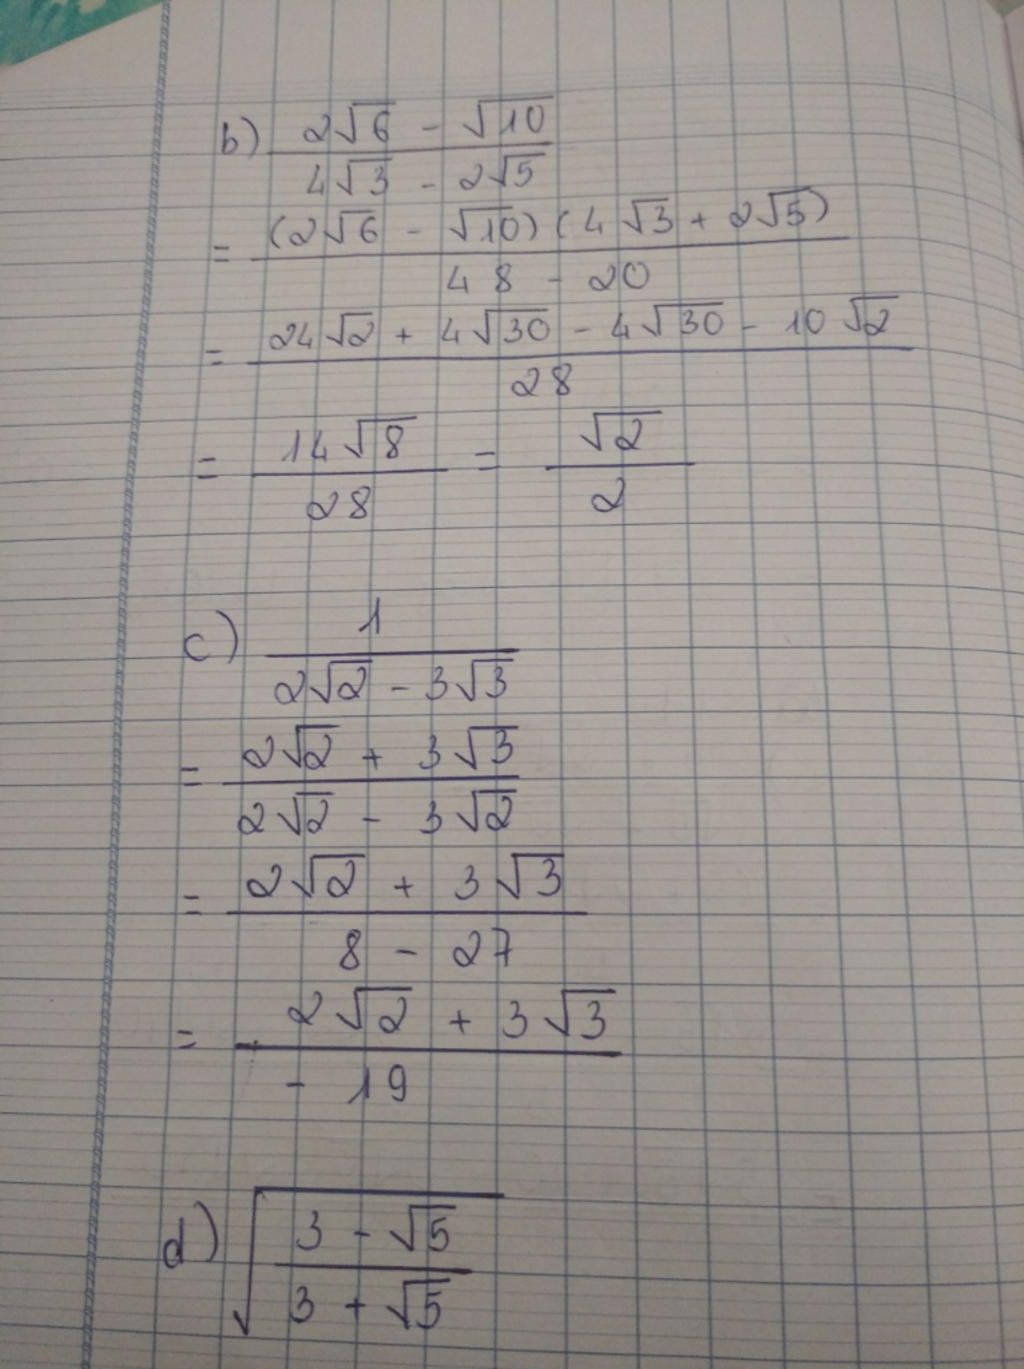 b) (2√6 - √10) / (4√3 - 2√5)
= (2√6 - √10)(4√3 + 2√5) / (48 - 20)
= (24√2 + 4√30 - 4√30 - 10√2) / 28
= 14√8 / 28 = √2 / 2
c) 1 / (2√2 - 3√3)
= (2√2 + 3√3) / (2√2 - 3√2)
= (2√2 + 3√3) / (8 - 27)
= (2√2 + 3√3) / (- 19)
d) √((3 - √5) / (3 + √5))